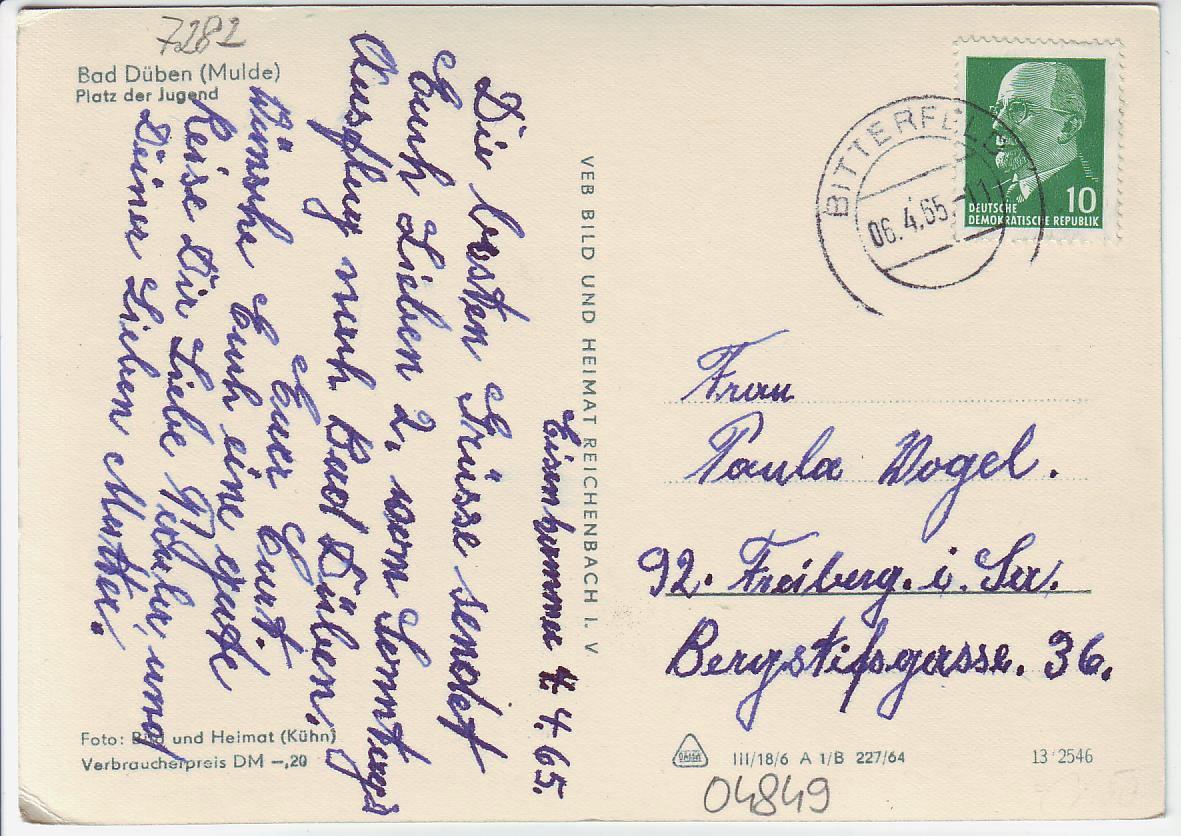 7282
Bad Düben (Mulde)
Platz der Jugend
Eisenhammer 4. 4. 65.
Die besten Grüsse sendet
Euch Lieben 2, vom Sonntags
Ausflug nach Bad Düben.
Euer Curt.
Wünsche Euch eine gute
Reise Dir Liebe und
Deiner Lieben Mutter.
Foto: Bild und Heimat (Kühn)
Verbraucherpreis DM –,20
VEB BILD UND HEIMAT REICHENBACH I. V
BITTERFELD
06.4.65.-11
10
DEUTSCHE
DEMOKRATISCHE REPUBLIK
Frau
Paula Vogel.
92. Freiberg. i. Sa.
Bergstiftsgasse. 36.
III/18/6 A 1/B 227/64
13/2546
04849